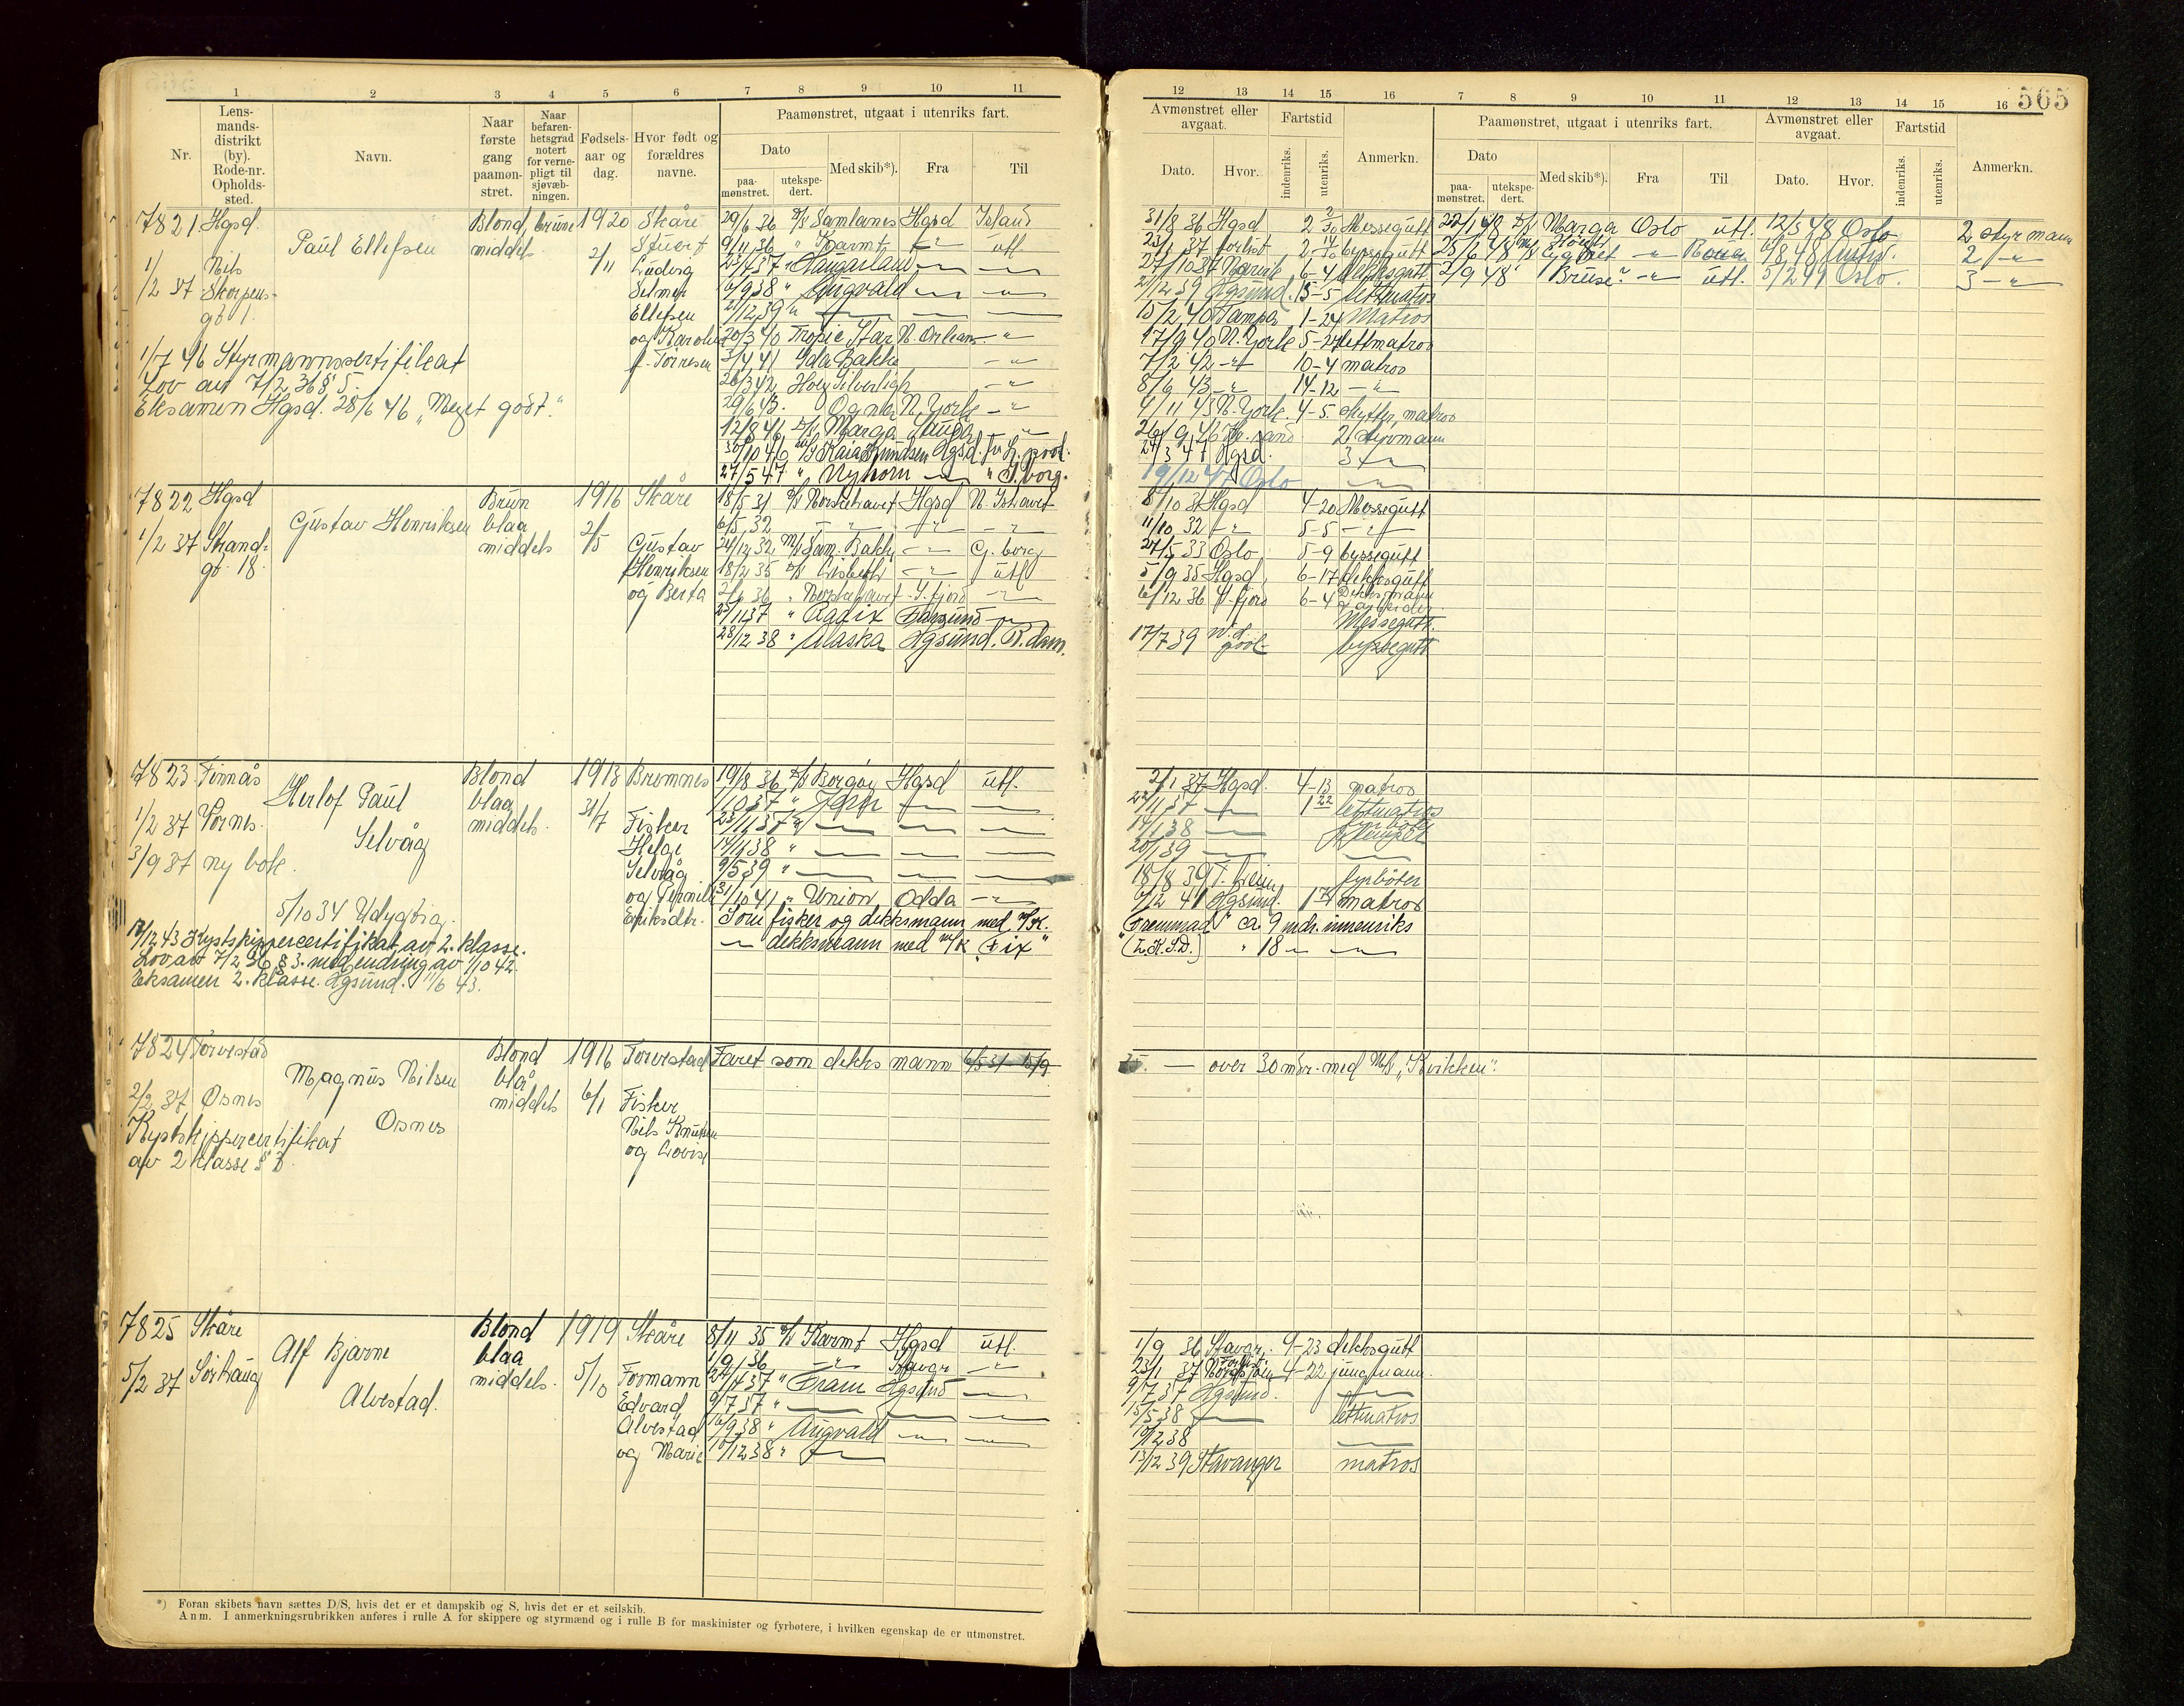 565
1 2 3 4 5 6 7 8 9 10 11
Nr.
Lensmandsdistrikt (by). Rode-nr. Opholdssted.
Navn.
Naar første gang paamønstret.
Naar befarenhetsgrad notert for vernepligt til sjøvæbningen.
Fødselsaar og dag.
Hvor født og forældres navne.
Paamønstret, utgaat i utenriks fart.
Dato
paamønstret.
utekspedert.
Med skib*).
Fra
Til
12 13 14 15 16 7 8 9 10 11 12 13 14 15 16
Avmønstret eller avgaat.
Dato.
Hvor.
Fartstid
indenriks.
utenriks.
Anmerkn.
Paamønstret, utgaat i utenriks fart.
Dato
paamønstret.
utekspedert.
Med skib*).
Fra
Til
Avmønstret eller avgaat.
Dato.
Hvor.
Fartstid
indenriks.
utenriks.
Anmerkn.
7821 Hgsd.
Paul Ellefsen
Blond, brune
middels
1920
2/11
Skåre
Stuert
Ludvig
Selmer
Ellefsen
og Karoline
f. Tørresen
1/2 37
Nils
Skorpens-
gt 1.
1/7 46 Styrmannssertifikat
Lov av 7/2 36 § 5.
Eksamen Hgsd. 28/6 46 "Meget godt."
29/6 36 D/S Samlanes Hgsd Island
9/11 36 " Karmt utl
" Haugarland
16/9 38 " Augvald
21/12 39 "
20/3 40 Tropic Star N. Orleans "
3/4 41 Ida Bakke "
26/3 42 Høegh Silverligh "
29/6 43. Ogna N. York "
12/8 46 D/S Marga Sauda "
30/10 46 M/S Kaia Knudsen Hgsd. f/v L. pool.
27/5 47 " Nyhorn " G. borg.
31/8 36 Hgsd 2 Messegutt
23/1 37 forlist byssegutt
27/10 37 Narvik 6-4 dekksgutt
21/12 39 Hgsund. 15-5 lettmatros
15/2 40 Tampa 1-24 Matros
17/9 40 N. York 5-27 lettmatros
7/2 42 " 10-4 matros
8/6 43 " 14-12 "
4/11 45 N. York. 4-5. skytter, matros
26/9 46 Kr. sand 2 styrmann
24/3 47 Hgsd. 3 "
19/12 47 Oslo
22/1 48 D/S Marga Oslo utl. 12/5 48 Oslo 2 styrmann
25/6 48 2 "
2/9 48 " Bruse " utl. 5/2 49 Oslo. 3 "
7822 Hgsd
Gustav Henriksen
Brun
blaa
middels
1916
2/5
Skåre
Gustav
Henriksen
og Berta
1/2 37 Strand-
gt. 18.
18/5 31 D/S Norskehavet Hgsd N. Ishavet
6/5 32 " " "
24/12 32 M/S Sam. Bakke " G. borg
18/2 35 D/S Lisbeth " utl
2/6 36 " Norskehavet S. fjord "
28/12 38 " Alaska Hgsund. R. dam.
8/10 31 Hgsd 4-20 Messegutt
11/10 32 " 5-5 "
27/5 33 Oslo 5-9 byssegutt
5/9 35 Hgsd 6-17 dekksgutt
6/12 36 S. fjord 6-4 Dekksmann
Messegutt.
17/7 39 byssegutt
7823 Finnås
Herlof Paul
Selvåg
Blond
blaa
middels.
1913
31/7
Bremnes
Fisker
Helge
Selvåg
og Pernille
Eriksdtr.
1/2 37 Vornes.
3/9 37 ny bok.
5/10 34 Udygtig.
17/12 43 Kystskippercertifikat av 2. klasse.
Lov av 7/2 36 § 3. med endring av 1/10 42.
Eksamen 2. klasse. Hgsund. 11/6 43.
19/8 36 D/S Borgøy Hgsd utl.
23/11 37 "
17/1 38 "
9/5 39 "
31/10 41 " Union Odda "
Som fisker og dekksmann med M/K.
" dekksmann med M/K
2/1 37 Hgsd. 4-13 matros
22/11 37 lettmatros
14/1 38
20/1 39
18/8 39 fyrbøter
9/12 41 Hgsund. matros
ca. 9 mdr. innenriks
" 18
7824 Torvestad
Magnus Nilsen
Osnes
Blond
blå
middels
1916
6/1
Torvestad
Fisker
Nils Knutsen
og Lovise
2/2 37 Osnes
Kystskippercertifikat
av 2 klasse § 3
Faret som dekksmann 6/5 31 - 15/9
35. — over 30 mdr. med M/K "Kvikken".
7825 Skåre
Alf Bjarne
Alvestad.
Blond
blaa
middels.
1919
5/10
Skåre
Formann
Edvard
Alvestad
og Marie
5/2 37 Sørhaug
8/11 35 D/S Karmt Hgsd utl.
1/9 36 " Stavgr. "
24/4 37 " Fram Hgsund
9/7 37 "
16/9 38 " Augvald
10/12 38 "
1/9 36 Stavgr. 9-23 dekksgutt
23/1 37 Forlist Nordsjøen 4-22 jungmann.
9/7 37 Hgsund.
15/5 38 lettmatros
10/12 38
13/12 39 Stavanger matros
*) Foran skibets navn sættes D/S, hvis det er et dampskib og S, hvis det er et seilskib.
Anm. I anmerkningsrubrikken anføres i rulle A for skippere og styrmænd og i rulle B for maskinister og fyrbøtere, i hvilken egenskap de er utmønstret.